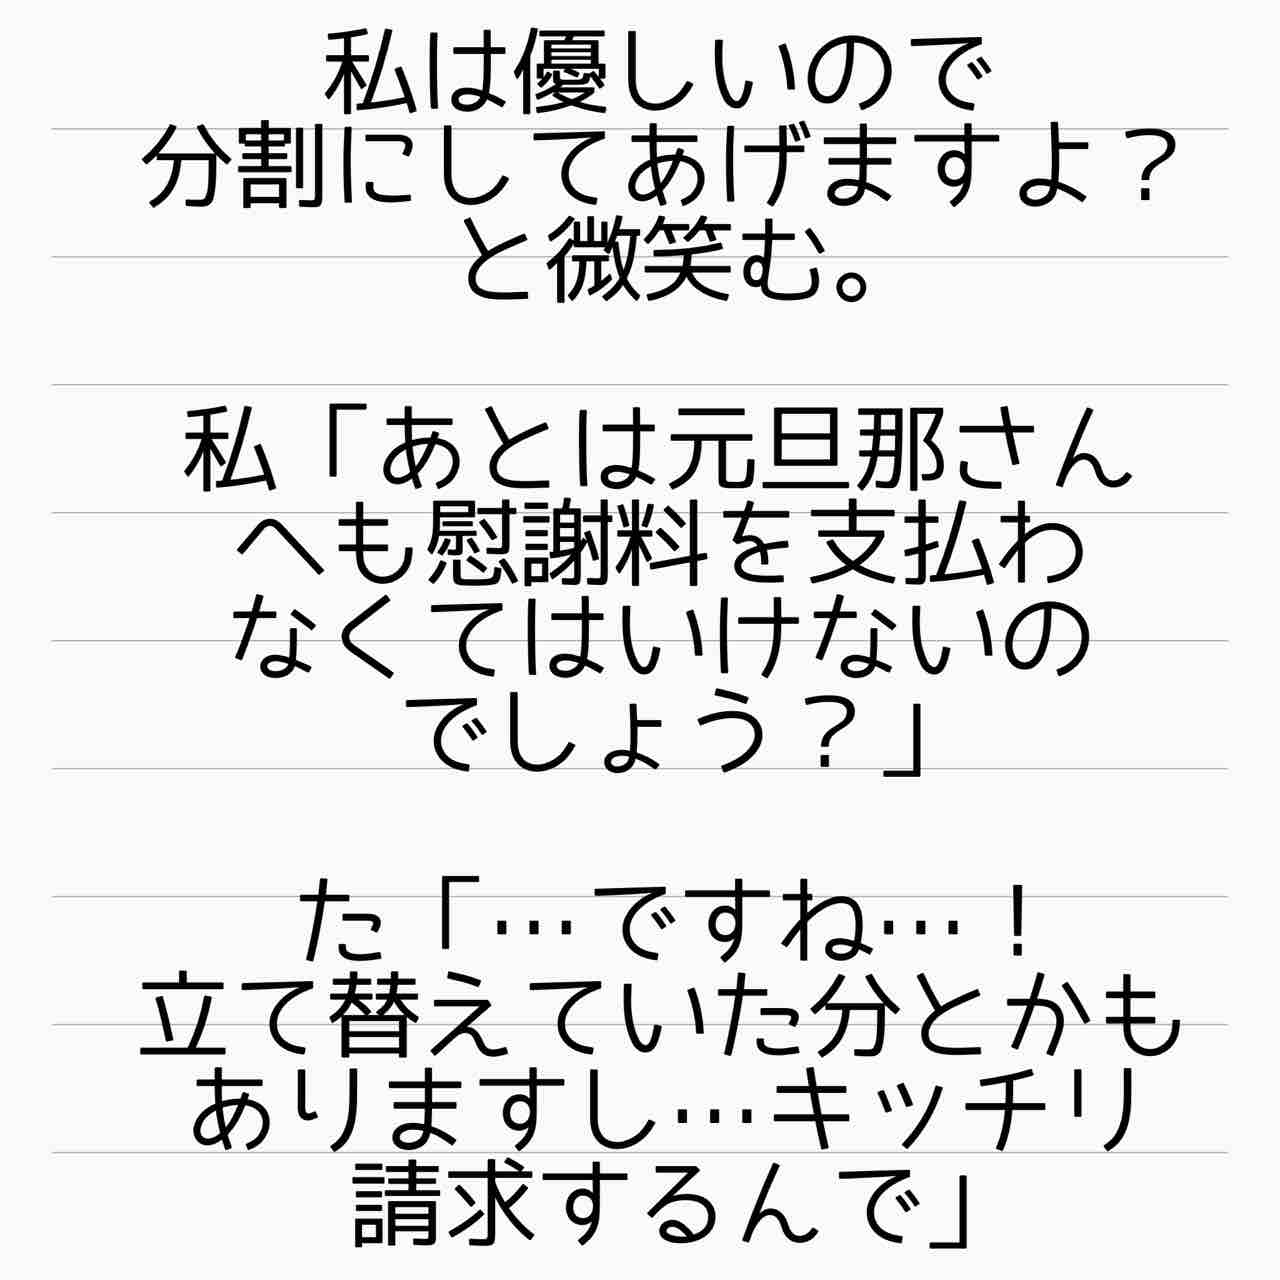 私は優しいので
分割にしてあげますよ？
と微笑む。
私「あとは元旦那さん
へも慰謝料を支払わ
なくてはいけないの
でしょう？」
た「…ですね…！
立て替えていた分とかも
ありますし…キッチリ
請求するんで」